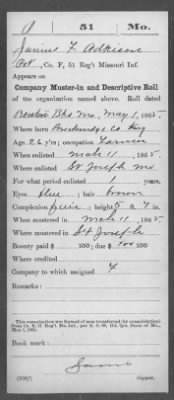 A | 51 | Mo.
Junius F. Adkison
Pvt, Co. F, 51 Reg't Missouri Inf.
Appears on
Company Muster-in and Descriptive Roll
of the organization named above. Roll dated
Benton Bks Mo, May 1, 1865.
Where born Breckenridge Co Key
Age 26 y'rs; occupation Farmer
When enlisted Mch 11, 1865.
Where enlisted St Joseph Mo
For what period enlisted 1 years.
Eyes blue; hair brown
Complexion fair; height 5 ft. 9 in.
When mustered in Mch 11, 1865.
Where mustered in St Joseph
Bounty paid $ 100; due $ 100 100
Where credited
Company to which assigned F
Remarks:
This organization was formed of men transferred (by consolidation)
May 1, 1865.
Book mark:
(339)
Copyist.